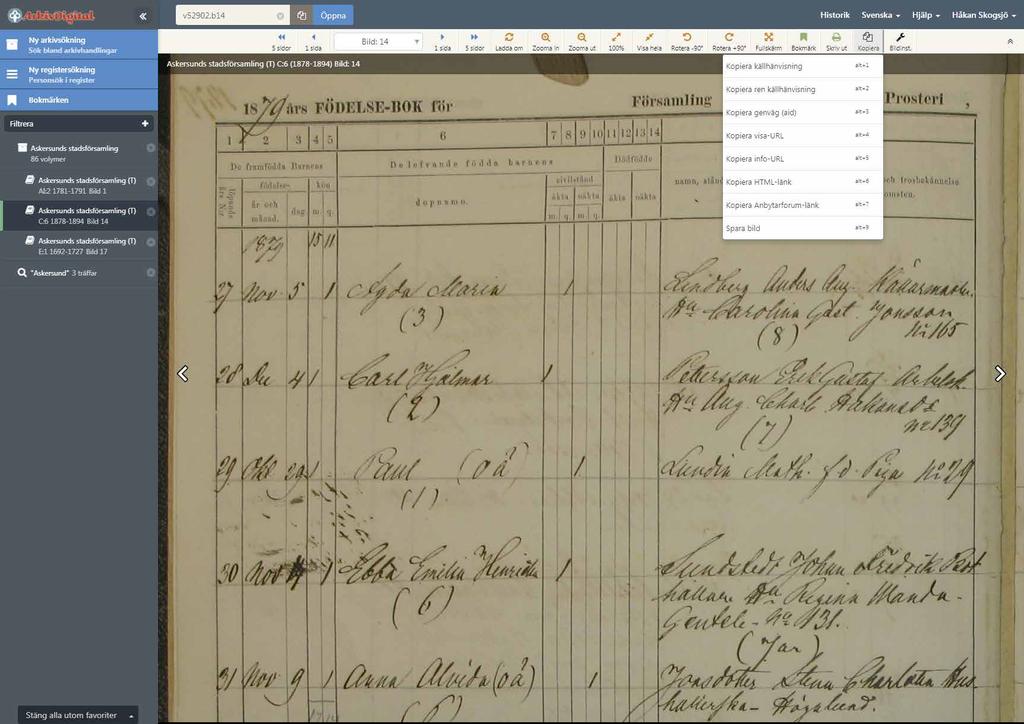 ArkivDigital
«
v52902.b14
Öppna
Historik
Svenska
Hjälp
Håkan Skogsjö
Ny arkivsökning
Sök bland arkivhandlingar
Ny registersökning
Personsök i register
Bokmärken
Filtrera
+
Askersunds stadsförsamling
86 volymer
Askersunds stadsförsamling (T)
AI:2 1781-1791 Bild 1
Askersunds stadsförsamling (T)
C:6 1878-1894 Bild 14
Askersunds stadsförsamling (T)
E:1 1692-1727 Bild 17
"Askersund" 3 träffar
Stäng alla utom favoriter
5 sidor
1 sida
Bild: 14
1 sida
5 sidor
Ladda om
Zooma in
Zooma ut
100%
Visa hela
Rotera -90°
Rotera +90°
Fullskärm
Bokmärk
Skriv ut
Kopiera
Bildinst.
Askersunds stadsförsamling (T) C:6 (1878-1894) Bild: 14
Kopiera källhänvisning alt+1
Kopiera ren källhänvisning alt+2
Kopiera genväg (aid) alt+3
Kopiera visa-URL alt+4
Kopiera info-URL alt+5
Kopiera HTML-länk alt+6
Kopiera Anbytarforum-länk alt+7
Spara bild alt+9
1879 års FÖDELSE-BOK för Församling Prosteri ,
1 2 3 4 5 6 7 8 9 10 11 12 13 14
De framfödda Barnens
De lefvande födda barnens
Dödfödde
födelse-
kön
civilstånd
namn, stånd
och trosbekännelse
löpande
års N:r
år och
månad.
dag.
m. q.
dopnamn.
äkta
oäkta
äkta
oäkta
m. q. m. q.
1879 15 11
27 Nov 5 1 Agda Maria 1 Lindberg Anders Aug.
(3) Hu Carolina Gust. Jonsson
(8) No 165
28 Dec 4 1 Carl Hjalmar 1 Pettersson Erik Gustaf Arbetsk
(2) Hu Aug. Charl. Håkansdr
(7) No 139
29 Okt 29 1 Paul (oä) 1 Lundin Math. f.d. Piga
(1)
30 Nov 1 Ebba Emilia Henrietta 1 Sundstedt Johan Fredrik
(6) hållare Hu Regina Manda
Gentele - No 131.
(7 ar)
31 Nov 9 1 Anna Alvida (oä) 1 Jonsdotter Stina Charlotta Hus-
hållerska - Höganlund.